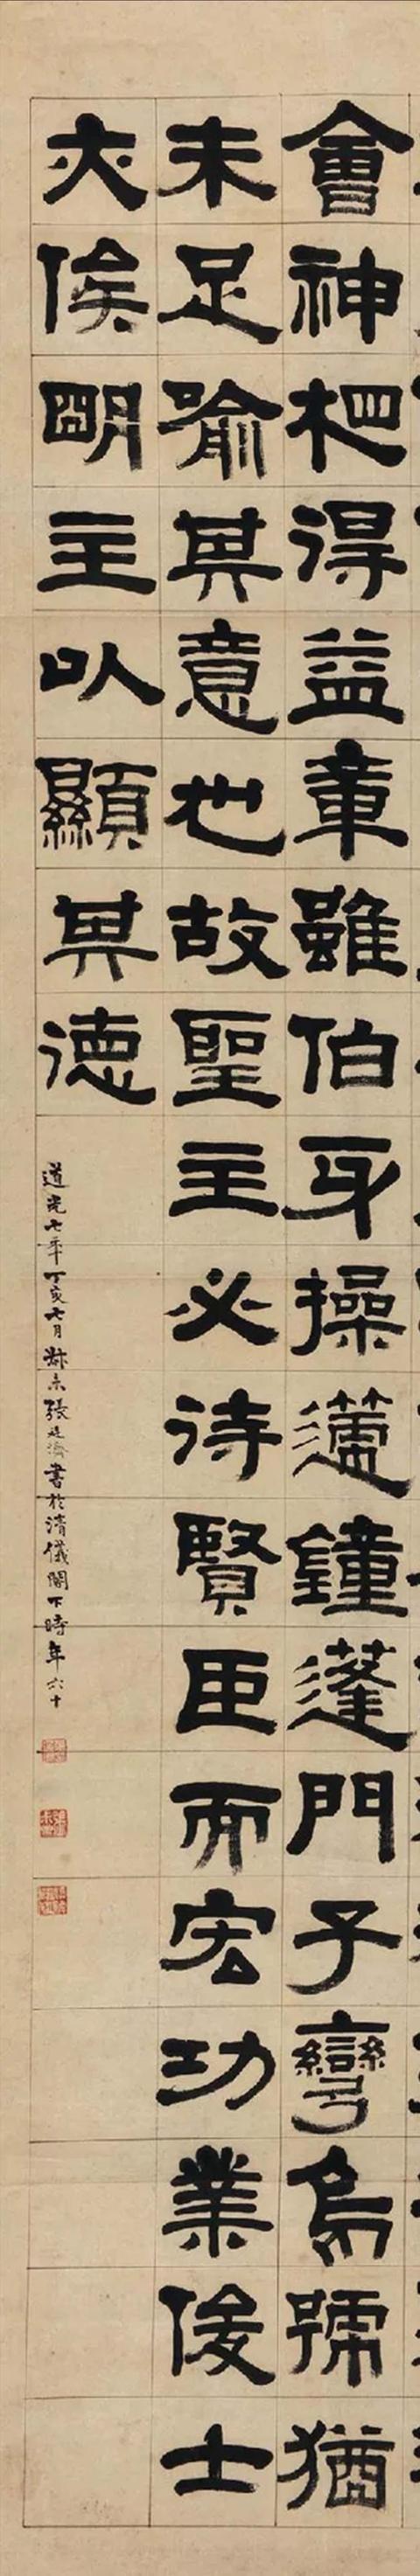 會神相得益章雖伯牙操遞鐘蓬門子彎烏號猶
未足喻其意也故聖主必待賢臣而宏功業俊士
亦俟明主以顯其德
道光七年丁亥七月叔未張廷濟書於清儀閣下時年六十